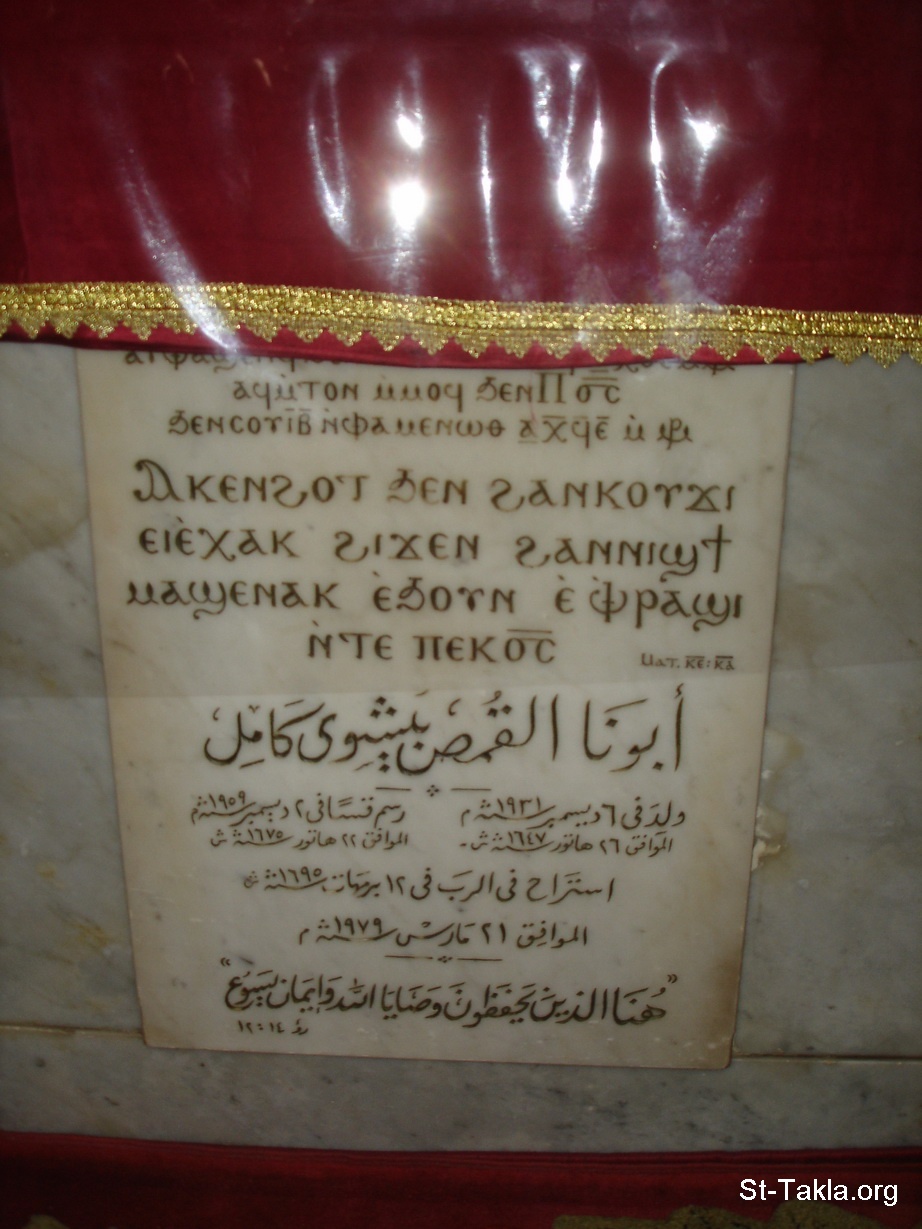 ⲁϥⲙ̀ⲧⲟⲛ ⲙ̀ⲙⲟϥ ϧⲉⲛ Ⲡⲟ̅ⲥ̅
ϧⲉⲛⲥⲟⲩⲓ̅ⲃ̅ ⲛ̀ⲫⲁⲙⲉⲛⲱⲑ ⲁ̲ⲭ̅ϥ̅ⲉ̅ ⲙ̀
Ⲁⲕⲉⲛϩⲟⲧ ϧⲉⲛ ϩⲁⲛⲕⲟⲩϫⲓ
ⲉⲓⲉ̀ⲭⲁⲕ ϩⲓϫⲉⲛ ϩⲁⲛⲛⲓϣϯ
ⲙⲁϣⲉⲛⲁⲕ ⲉ̀ϧⲟⲩⲛ ⲉ̀ ⲫ̀ⲣⲁϣⲓ
ⲛ̀ⲧⲉ ⲡⲉⲕⲟ̅ⲥ̅
Ⲙⲁⲧ. ⲕ̅ⲉ̅:ⲕ̅ⲁ̅
أَبونَا القُمّص بيشوى كَامِل
ولد فى ٦ ديسمبر سنة ١٩٣١ م
الموافق ٢٦ هاتور سنة ١٦٤٧ ش
رسم قسًا فى ٢ ديسمبر سنة ١٩٥٩ م
الموافق ٢٢ هاتور سنة ١٦٧٥ ش
استراح فى الرب فى ١٢ برمهات سنة ١٦٩٥ ش
الموافق ٢١ مارس سنة ١٩٧٩ م
"هُنَا الذين يَحفَظونَ وَصَايَا اللّه وَإيمَان يَسُوع"
رؤ ١٤ : ١٢
St-Takla.org